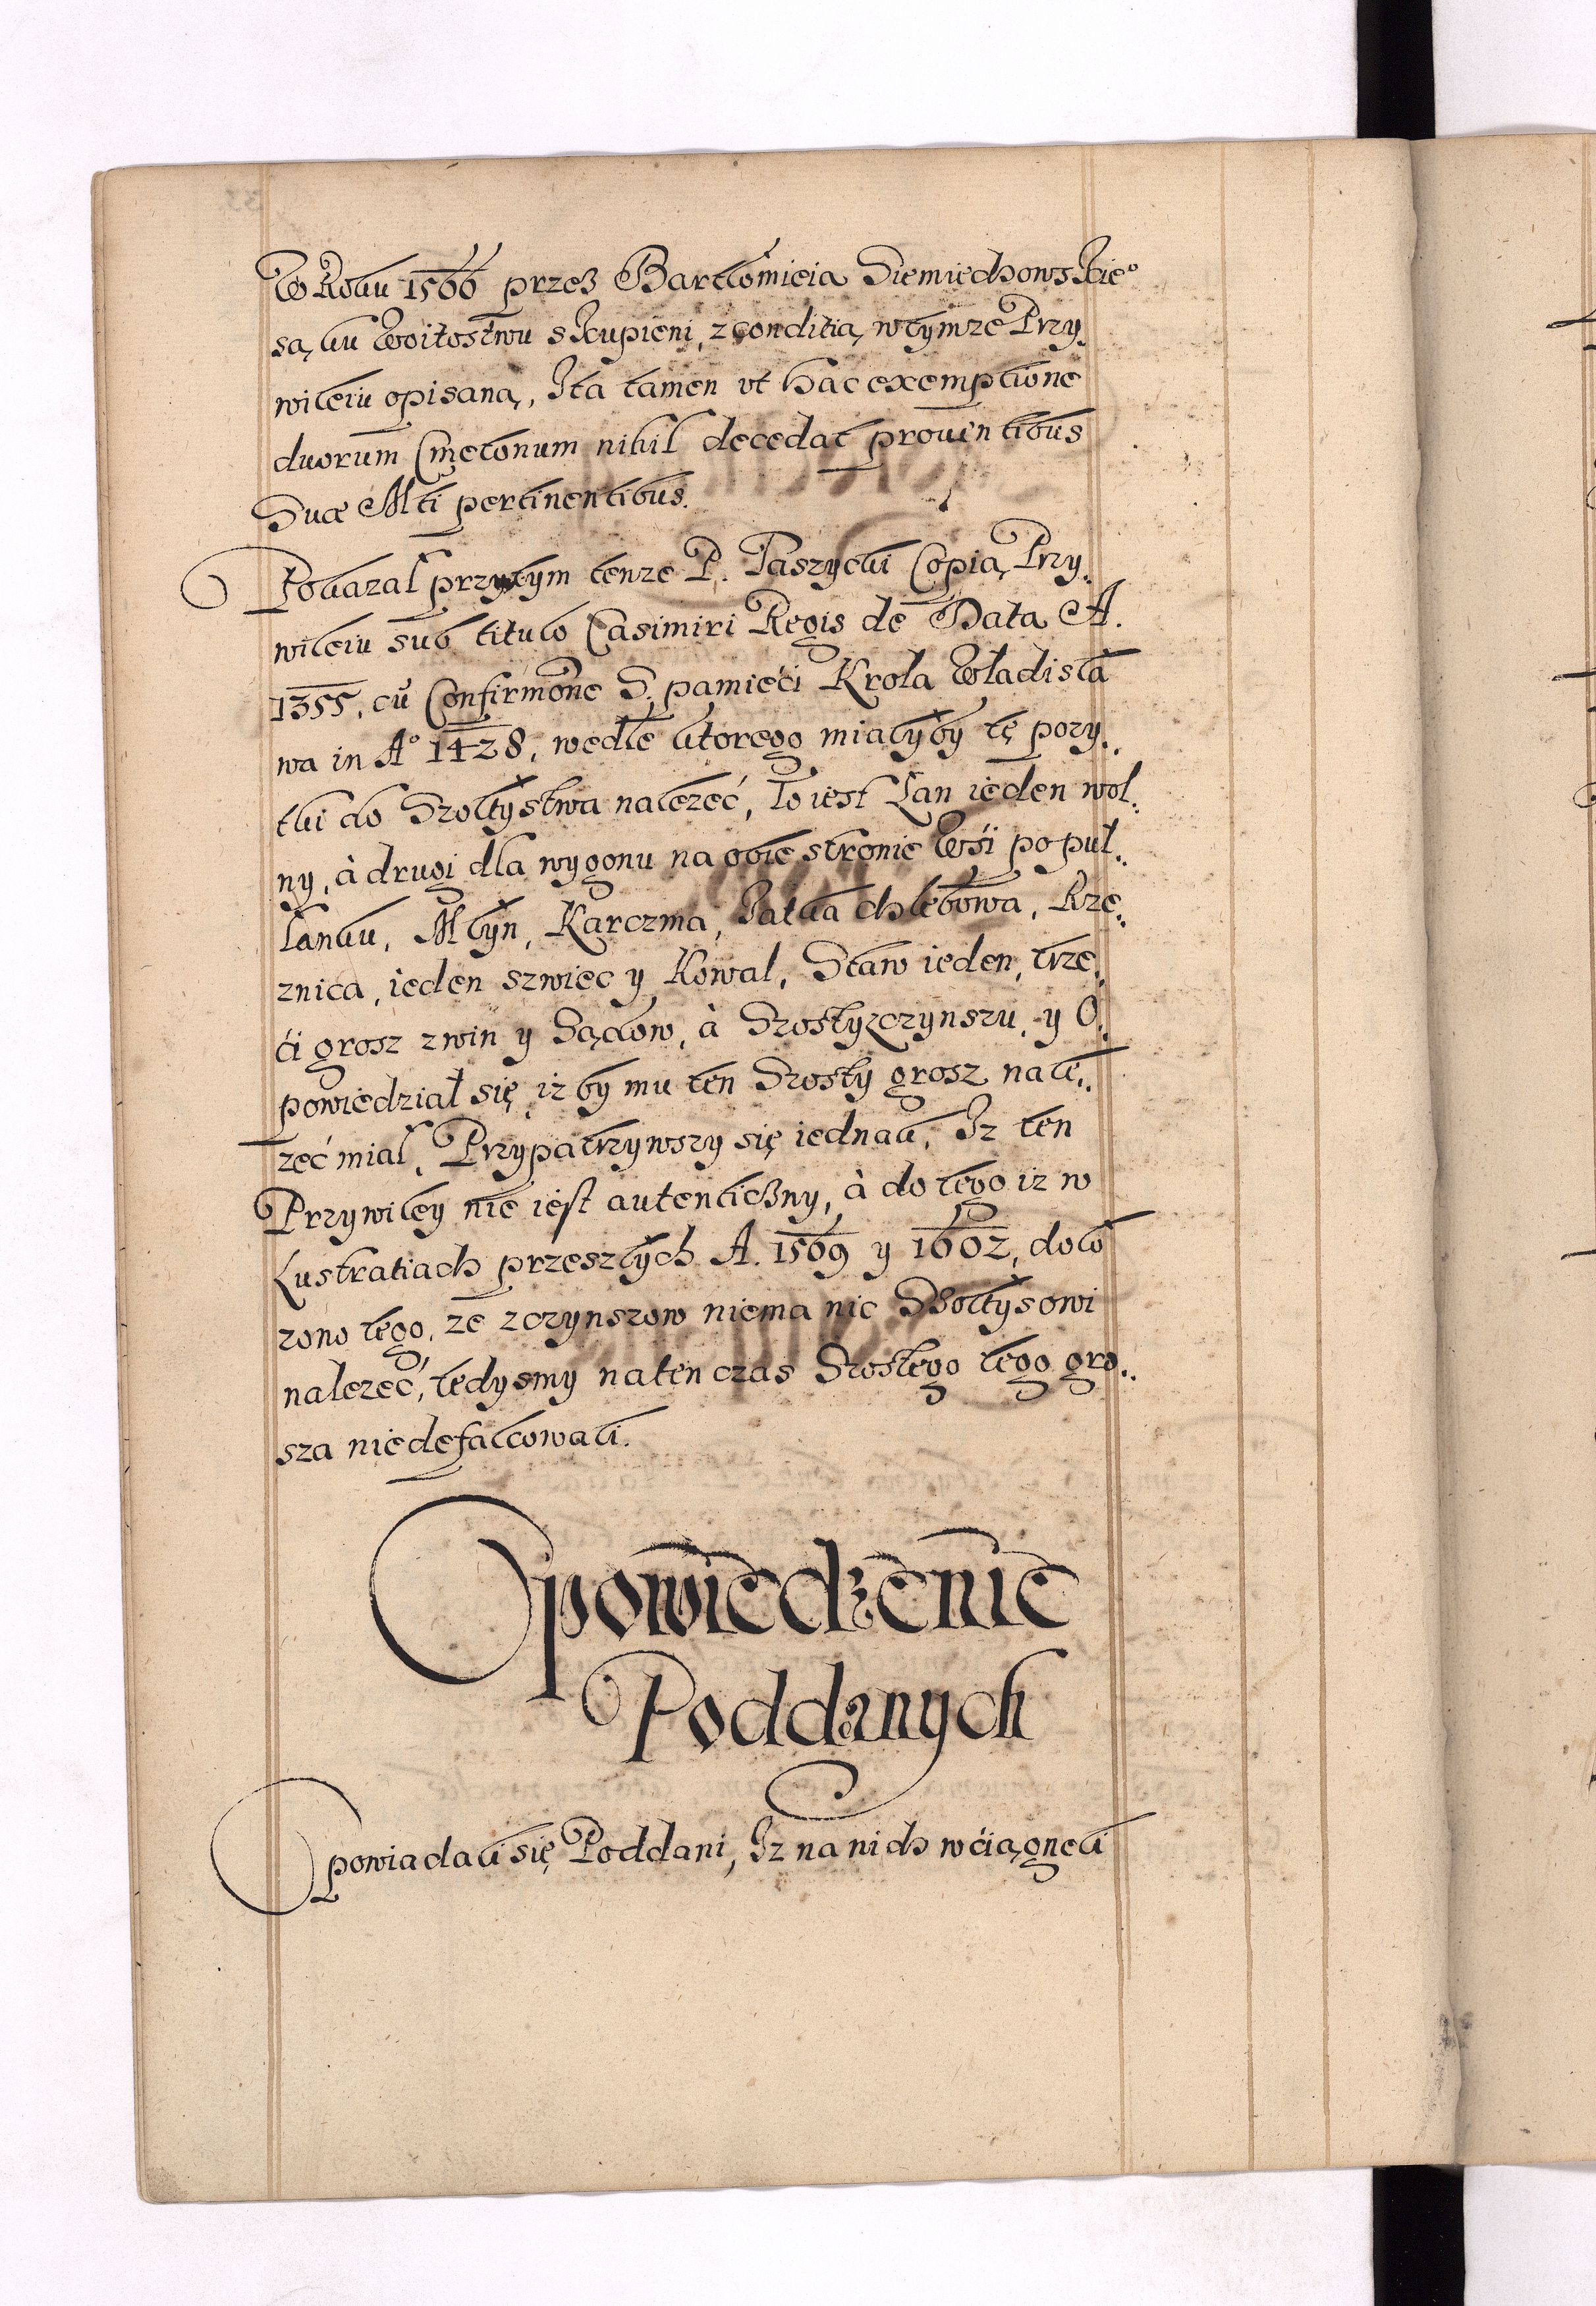 W Roku 1566 przez Bartłomieia Siemiechowskie°
są, ku Woitostwu skupieni, z conditią, w tymze Przy,
wileiu opisaną, Ita tamen vt hac exemptione
duorum Cmetonum nihil decedat prouentibus
Suæ Mti pertinentibus.
Pokazał przytym tenze P. Taszycki Copią Przy,
wileiu sub titulo Casimiri Regis de Data A.
1355, cū Confirmōne S. pamięći Krola Władisła
wa in A° 1428, wedle ktorego miałyby tę pozy,,
tki do Szołtystwa nalezeć, To iest Łan ieden wol,,
ny, à drugi dla wygonu na obie stronie Wśi po puł,,
łanku, Młyn, Karczma, Iatka chlebowa, Rze,,
znica, ieden szwiec y Kowal, Staw ieden, trze,
ći grosz z win y Sądow, à Szosty z czynszu, y O,
powiedział się iz by mu ten Szosty grosz nale,,
zeć miał, Przypatrzywszy się iednak, Iz ten
Przywiley nie iest autenticzny, à do tego iz w
Lustratiach przeszłych A. 1569 y 1602, doło
zono tego, ze z czynszow niema nic Szołtysowi
nalezeć, tedysmy na ten czas Szostego tego gro,,
sza nie defalcowali.
Opowiedzenie
Poddanych
Opowiadali się Poddani, Iz na nich wćiągneli